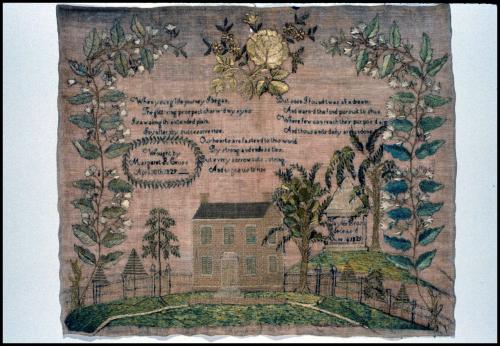 When young life's journey I began,
The glitt'ring prospect charm'd my eyes
I saw along th' extended plain
Joy after joy successive rise.
But soon I found 'twas all a dream
And learn'd the fond pursuit to shun
Where few can reach the purpos'd aim
And thousands daily are undone
Our hearts are fasten'd to this world
By strong and endless ties
But every sorrow cuts a string
And urges us to rise
Wrought by
Margaret
April 10th 1829